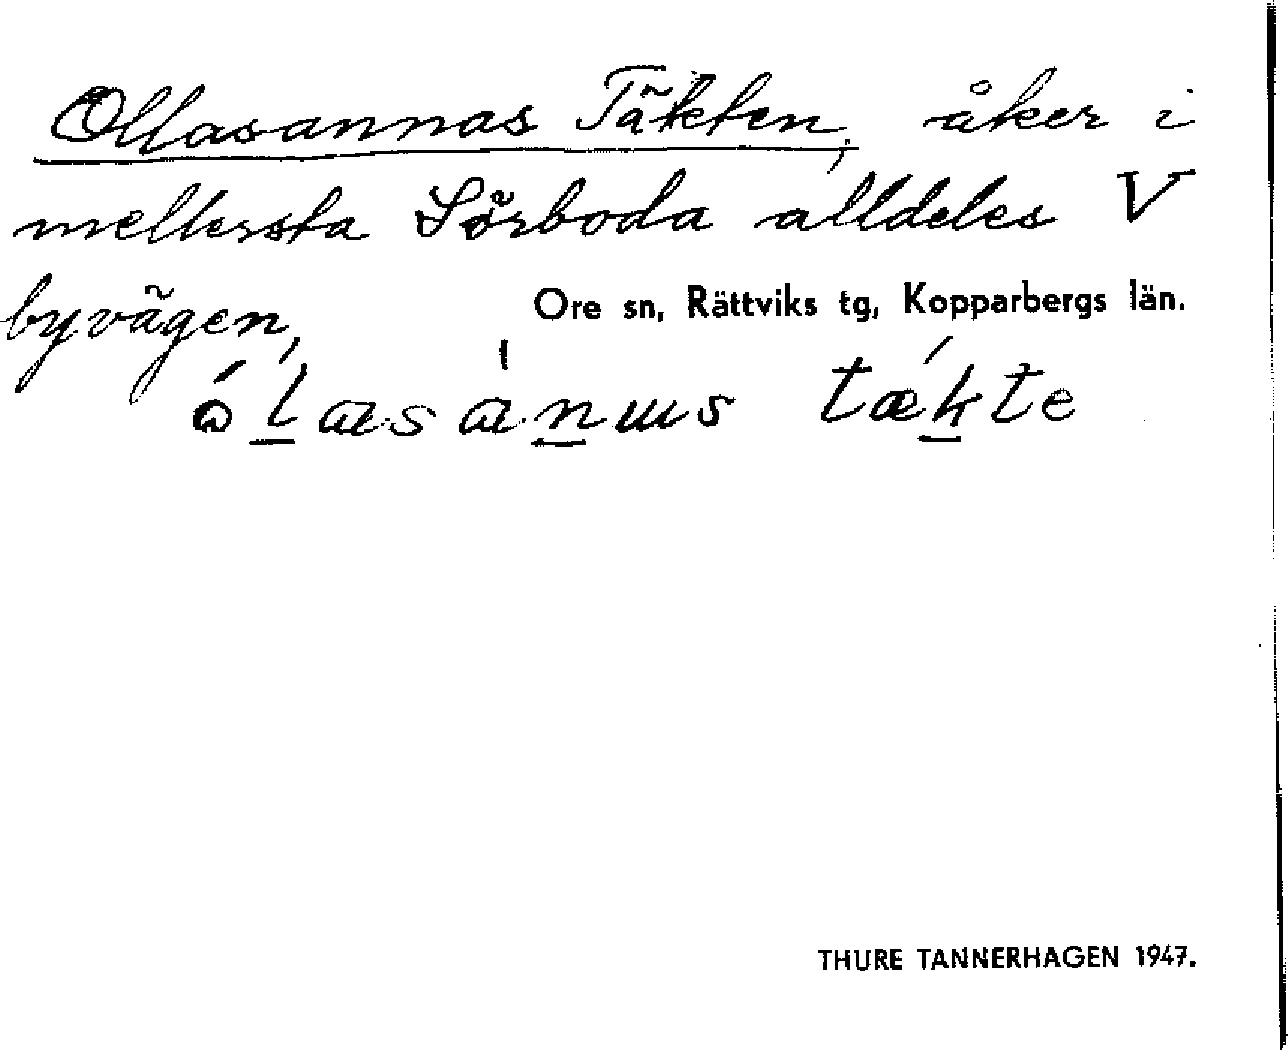 Ollasannas Täkten, åker i
mellersta Sörboda alldeles V
byvägen,
Ore sn, Rättviks tg, Kopparbergs län.
tækte
THURE TANNERHAGEN 1947.